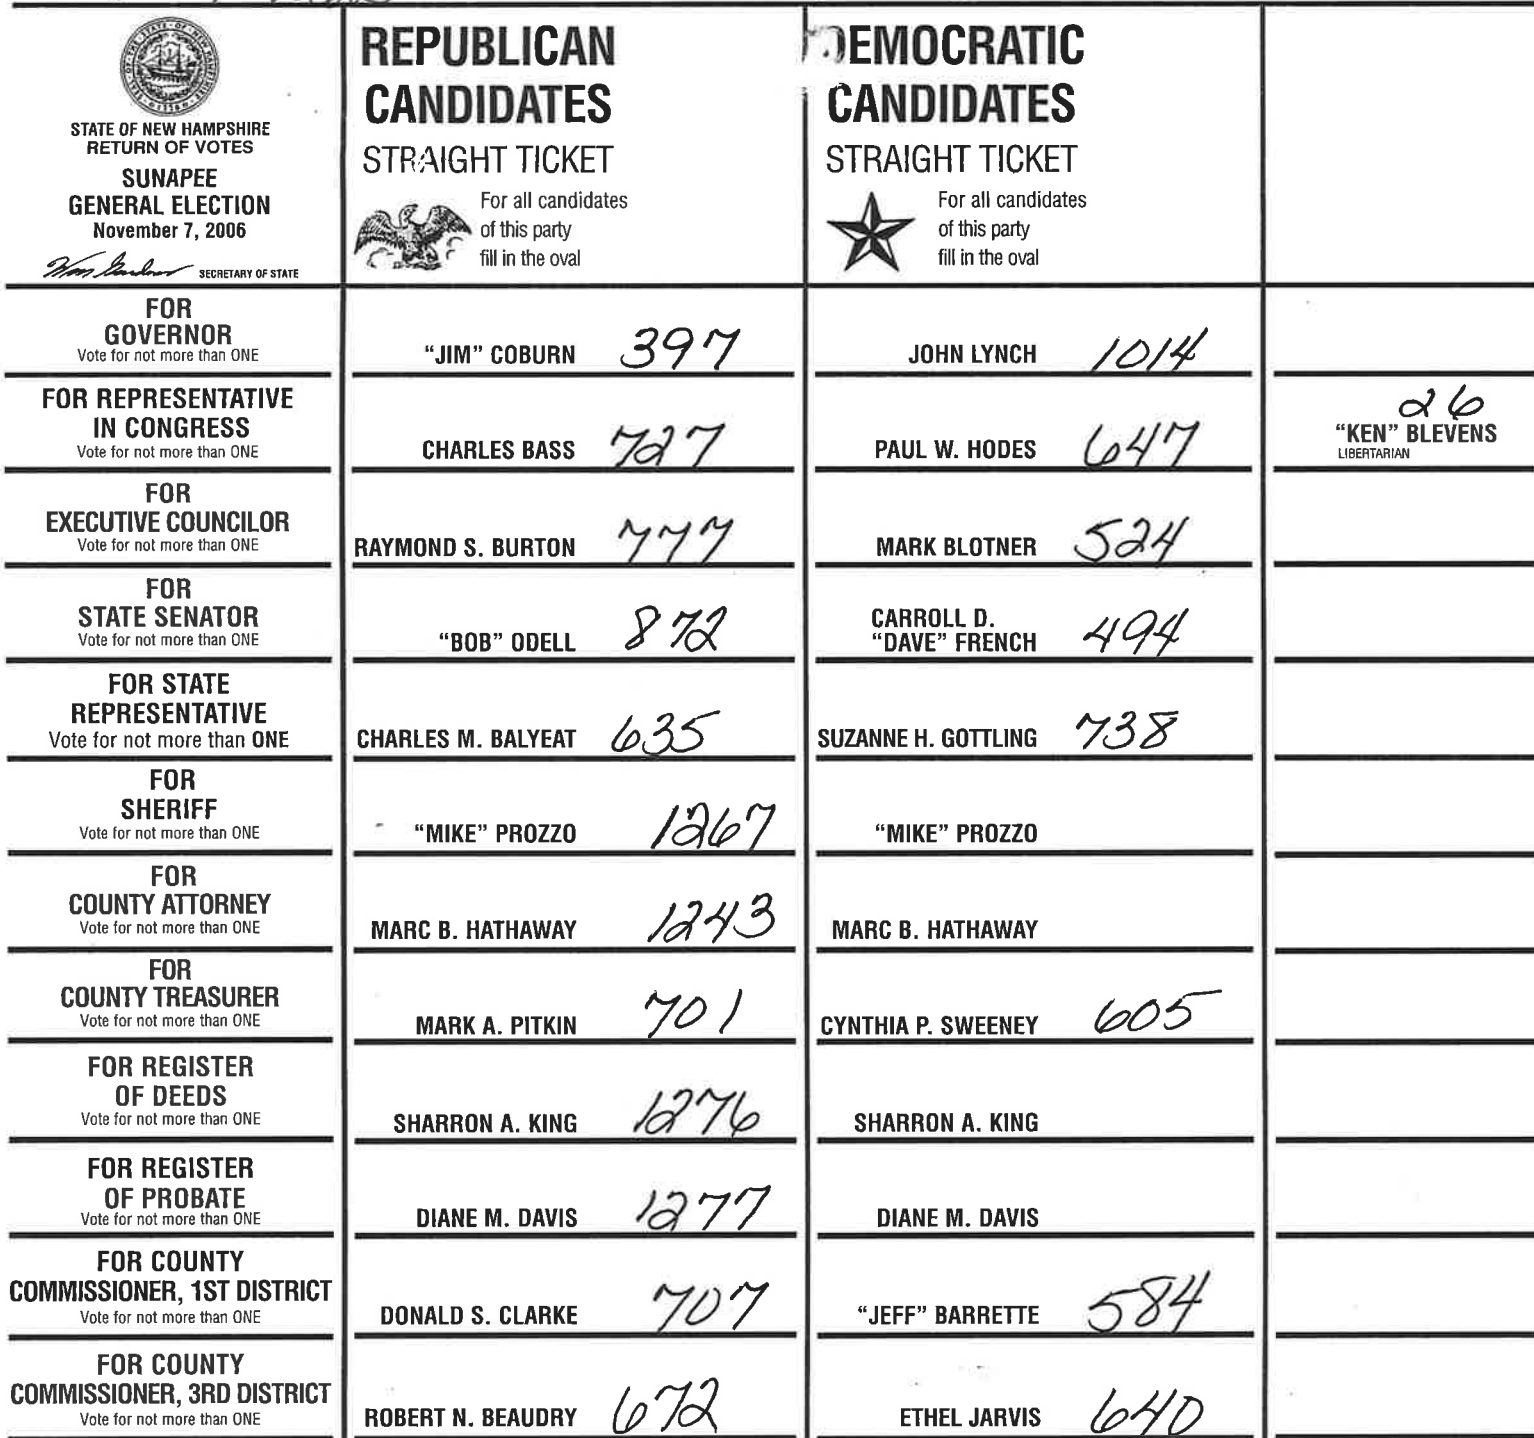 STATE OF NEW HAMPSHIRE
RETURN OF VOTES
SUNAPEE
GENERAL ELECTION
November 7, 2006
SECRETARY OF STATE
REPUBLICAN
CANDIDATES
STRAIGHT TICKET
For all candidates
of this party
fill in the oval
DEMOCRATIC
CANDIDATES
STRAIGHT TICKET
For all candidates
of this party
fill in the oval
FOR
GOVERNOR
Vote for not more than ONE
"JIM" COBURN 397
JOHN LYNCH 1014
FOR REPRESENTATIVE
IN CONGRESS
Vote for not more than ONE
CHARLES BASS 727
PAUL W. HODES 647
26
"KEN" BLEVENS
LIBERTARIAN
FOR
EXECUTIVE COUNCILOR
Vote for not more than ONE
RAYMOND S. BURTON 777
MARK BLOTNER 524
FOR
STATE SENATOR
Vote for not more than ONE
"BOB" ODELL 872
CARROLL D.
"DAVE" FRENCH 494
FOR STATE
REPRESENTATIVE
Vote for not more than ONE
CHARLES M. BALYEAT 635
SUZANNE H. GOTTLING 738
FOR
SHERIFF
Vote for not more than ONE
"MIKE" PROZZO 1267
"MIKE" PROZZO
FOR
COUNTY ATTORNEY
Vote for not more than ONE
MARC B. HATHAWAY 1243
MARC B. HATHAWAY
FOR
COUNTY TREASURER
Vote for not more than ONE
MARK A. PITKIN 701
CYNTHIA P. SWEENEY 605
FOR REGISTER
OF DEEDS
Vote for not more than ONE
SHARRON A. KING 1276
SHARRON A. KING
FOR REGISTER
OF PROBATE
Vote for not more than ONE
DIANE M. DAVIS 1277
DIANE M. DAVIS
FOR COUNTY
COMMISSIONER, 1ST DISTRICT
Vote for not more than ONE
DONALD S. CLARKE 707
"JEFF" BARRETTE 584
FOR COUNTY
COMMISSIONER, 3RD DISTRICT
Vote for not more than ONE
ROBERT N. BEAUDRY 672
ETHEL JARVIS 640